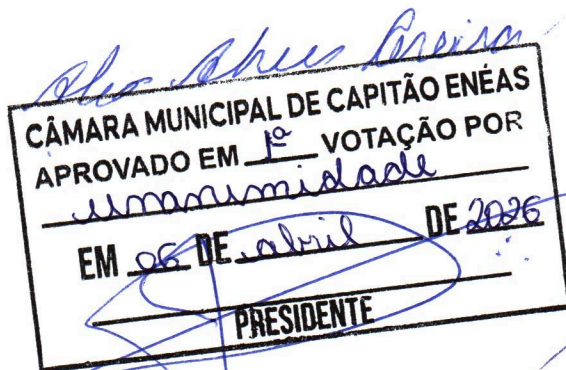 Pereira
CÂMARA MUNICIPAL DE CAPITÃO ENÉAS
APROVADO EM 1ª VOTAÇÃO POR
unanimidade
EM 06 DE abril DE 2026
PRESIDENTE